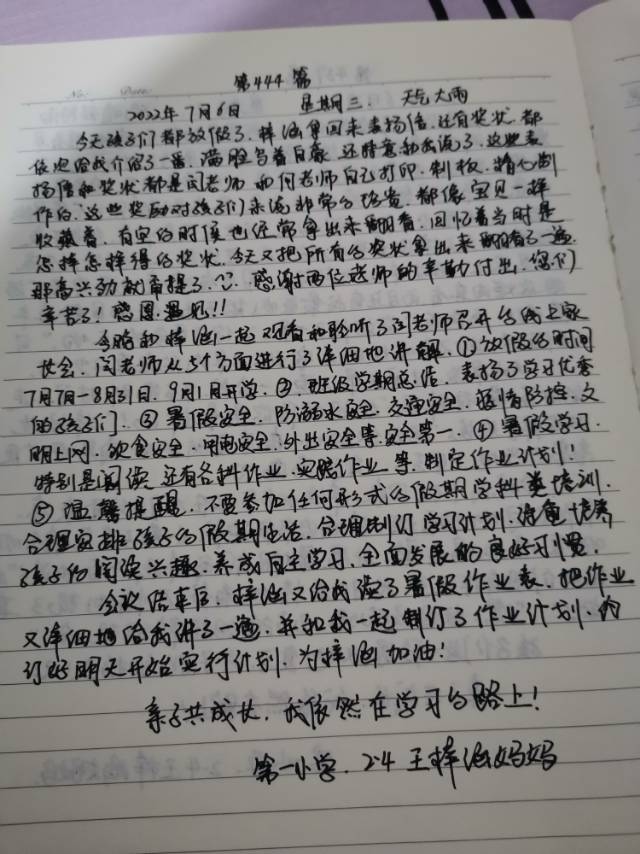 No. Date.
第444篇
2022年7月6日 星期三. 天气大雨
今天孩子们都放假了. 梓涵拿回来表扬信, 还有奖状. 都
依次给我介绍了一番, 满脸写着自豪. 还特意秀出说了. 这些表
扬信和奖状都是闫老师和何老师自己打印. 制板. 精心制
作的. 这些奖励对孩子们来说非常的珍贵. 都像宝贝一样
收藏着. 有空的时候也经常拿出来翻看. 回忆着当时是
怎样怎样得的奖状. 今天又把所有的奖状拿出来翻看了一遍.
那高兴劲就甭提了. 感谢两位老师的辛勤付出. 您们
辛苦了! 感恩遇见!!
今晚和梓涵一起观看和聆听了闫老师召开的线上家
长会. 闫老师从5个方面进行了详细地讲解. ①放假的时间
7月7日-8月31日. 9月1日开学. ②. 班级学期总结. 表扬了学习优秀
的孩子们. ③ 暑假安全. 防溺水安全. 交通安全. 疫情防控. 文
明上网. 饮食安全. 用电安全. 外出安全等. 安全第一. ④ 暑假学习.
特别是阅读. 还有各科作业. 实践作业等. 制定作业计划!
⑤ 温馨提醒. 不要参加任何形式的假期学科类培训.
合理安排孩子的假期生活. 合理制订学习计划. 注重培养
孩子的阅读兴趣. 养成自主学习. 全面发展的良好习惯.
会议结束后. 梓涵又给我读了暑假作业表. 把作业
又详细地给我讲了一遍. 并和我一起制订了作业计划. 约
订好明天开始实行计划. 为梓涵加油!
亲子共成长. 我依然在学习的路上!
第一小学. 2.4 王梓涵妈妈